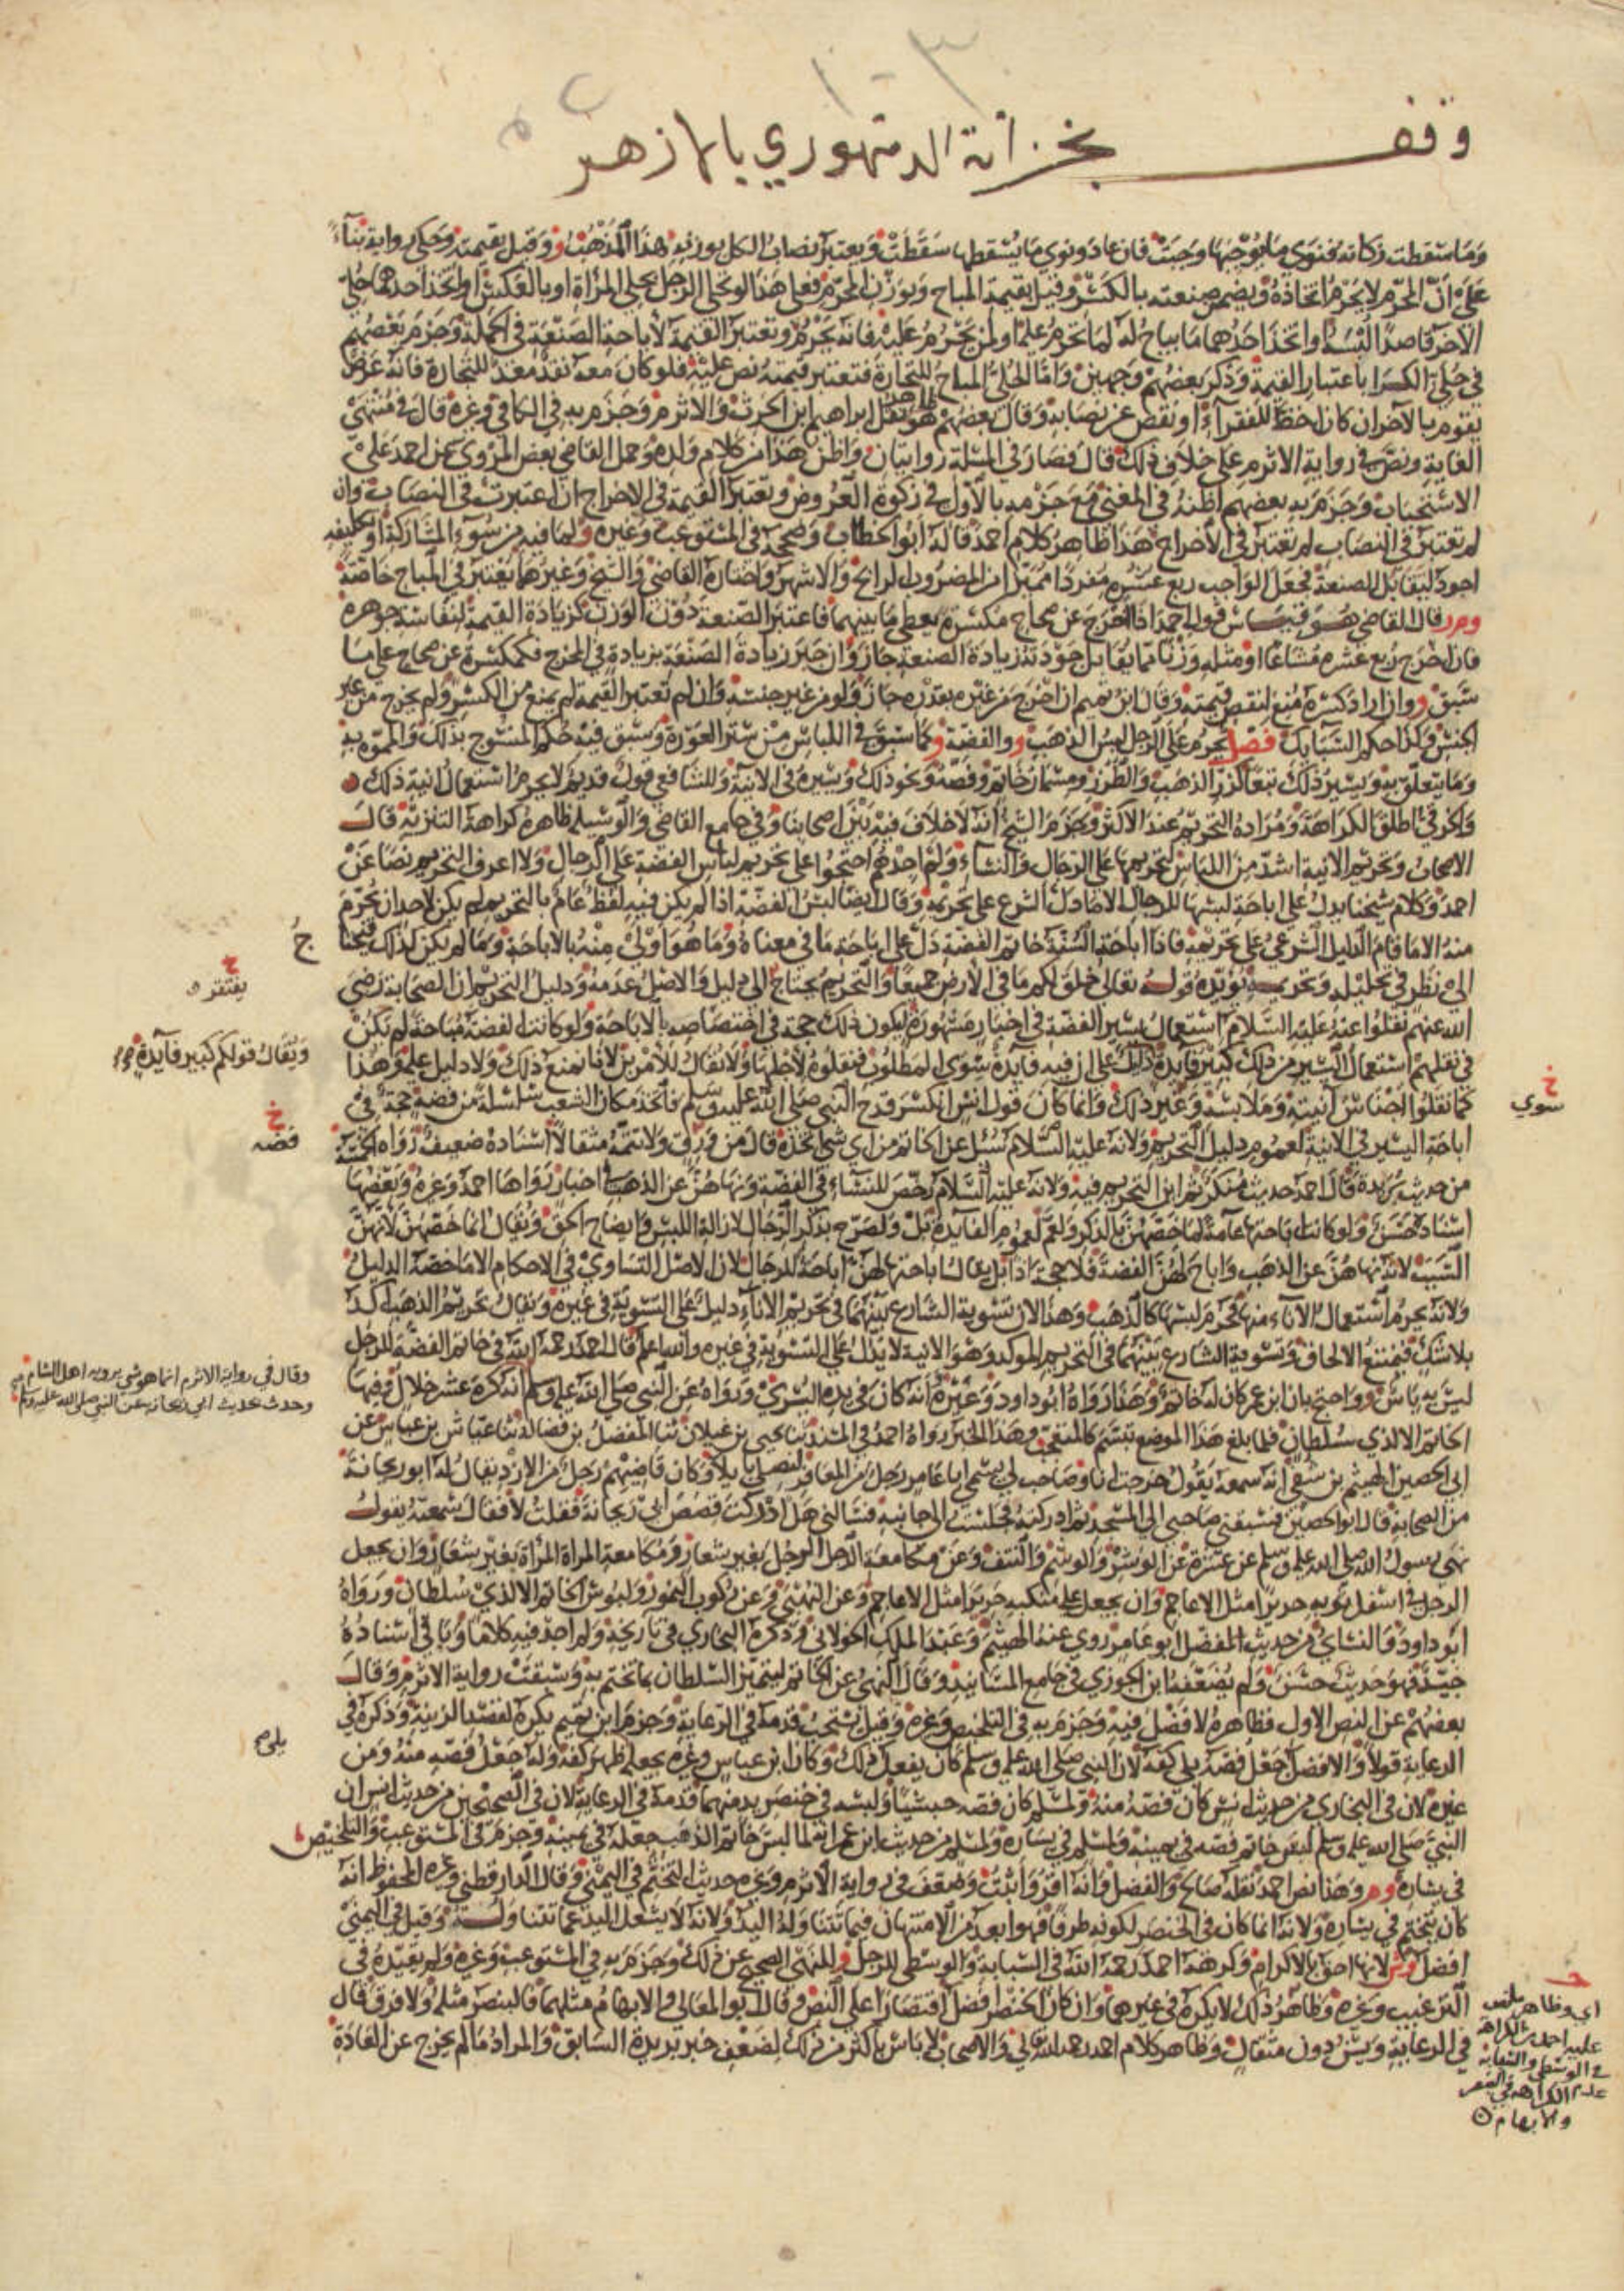 وقف بخزانة الدمنهوري بالازهر
وما سقطت زكاته فنوى ما يوجبها وجبت فان عاد ونوى ما يسقطها سقطت ويعتبر نصاب الكل بوزنه هذا المذهب و وقيل بقيمته وحكى رواية بناء
على ان المحرم لا يحرم اتخاذه ويضمن صنعته بالكسر وقيل بقيمة المباح وبوزن المحرم فعلى هذا لو تحلى الرجل بحلي المراة او بالعكس او اتخذ احدهما حلي
الاخر قاصدا لبسه او اتخذ احدهما ما يباح له لما يحرم عليه او لمن يحرم عليه فانه يحرم وتعتبر القيمة لاباحة الصنعة في الجملة وجزم بعضهم
في حلي الكرا باعتبار القيمة وذكر بعضهم وجهين واما الحلي المباح للتجارة فتعتبر قيمته نص عليه فلو كان معه نقد معد للتجارة فانه عرض
يقوم بالاخر ان كان احظ للفقراء او نقص عن نصابه وقال بعضهم هو ظاهر نقل ابراهيم ابن الحرث والاثرم وجزم به في الكافي وغيره قال في منتهى
الغاية ونص في رواية الاثرم على خلاف ذلك قال فصار في المسئلة روايتان واظن هذا من كلام ولده وحمل القاضي بعض المروي عن احمد على
الاستحباب وجزم به بعضهم اظنه في المغني مع جزمه بالاول في زكوة العروض وتعتبر القيمة في الاخراج ان اعتبرت في النصاب وان
لم تعتبر في النصاب لم تعتبر في الاخراج هذا ظاهر كلام احمد قاله ابو الخطاب وصححه في المستوعب وغيره و لما فيه من سوء المشاركة او تكليفه
اجود ليقابل الصنعة فجعل الواجب ربع عشره مفردا مميزا من المضروب الرائج والاشهر واختاره القاضي والشيخ وغيرهما يعتبر في المباح خاصة
وم ر قال القاضي هو قياس قول احمد اذا اخرج عن صحاح مكسرة يعطي ما بينهما فاعتبر الصنعة دون الوزن كزيادة القيمة لنفاسة جوهره
فان اخرج ربع عشره مشاعا او مثله وزنا مما يقابل جودته زيادة الصنعة جاز وان جبر زيادة الصنعة بزيادة في المخرج فكمكسرة عن صحاح على ما
سبق و وان اراد كسره منع لنقص قيمته وقال ابن تميم ان اخرج من غيره بقدره جاز ولو من غير جنسه وان لم تعتبر القيمة لم يمنع من الكسر ولم يخرج من غير
الجنس وكذا حكم السبايك فصل يحرم على الرجل لبس الذهب و والفضة و كما سبق في اللباس من ستر العورة وسبق فيه حكم المنسوج بذلك والمموه به
وما يتعلق به ويسير ذلك تبعا كزر الذهب والطرز ومسمار خاتم وفصه ونحو ذلك ويسيره في الانية وللشافعي قول قديم لا يحرم استعمال انية ذلك
واكثر في ما اطلق الكراهة ومراده التحريم عند الاكثر وجزم الشيخ انه لا خلاف فيه بين اصحابنا وفي جامع القاضي والوسيلة ظاهره كراهة التنزيه قال
الاصحاب وتحريم الانية اشد من اللباس لتحريمها على الرجال والنساء ولم اجدهم احتجوا على تحريم لباس الفضة على الرجال ولا اعرف التحريم نصا عن
احمد وكلام شيخنا يدل على اباحة لبسها للرجال الا ما دل الشرع على تحريمه وقال ايضا لبس الفضة اذا لم يكن فيه لفظ عام بالتحريم لم يكن لاحد ان يحرم
منه الا ما قام الدليل الشرعي على تحريمه فاذا اباحت السنة خاتم الفضة دل على اباحة ما في معناه وما هو اولى منه بالاباحة وما لم يكن كذلك فيحتاج
الى نظر في تحليله وتحريمه يؤيده قوله تعالى خلق لكم ما في الارض جميعا والتحريم يحتاج الى دليل والاصل عدمه ودليل التحريم ان الصحابة رضي
الله عنهم نقلوا عنه عليه السلام استعمال يسير الفضة في اخبار مشهورة ليكون ذلك حجة في اختصاصه بالاباحة ولو كانت الفضة مباحة لم يكن
في نقلهم استعمال اليسير من ذلك كبير فايدة ذلك على ان فيه فايدة سوى المطلوب فنقلوه لاجلها ولا يقال للامرين لانا نمنع ذلك ولا دليل عليه وهذا
كما نقلوا اجناس انيته وملابسه وغير ذلك وانما كان قول انس انكسر قدح النبي صلى الله عليه وسلم فاتخذ مكان الشعب سلسلة من فضة حجة في
اباحة اليسير في الانية لعموم دليل التحريم ولانه عليه السلام سئل عن الخاتم من اي شي اتخذه قال من ورق ولا تتمه مثقالا اسناده ضعيف رواه الخمسة
من حديث بريدة قال احمد حديث منكر ثم اين التحريم فيه ولانه عليه السلام رخص للنساء في الفضة ونهاهن عن الذهب في اخبار رواها احمد وغيره وبعضها
اسناده حسن ولو كانت اباحتها عامة لما خصهن بالذكر ولعم لعموم الفايدة بل ولصرح بذكر الرجال لازالة اللبس وايضاح الحق ويقال انما خصهن لانهن
السبب لانه نهاهن عن الذهب واباح لهن الفضة فلا حجة اذا بل يقال اباحتها لهن اباحة للرجال لان الاصل التساوي في الاحكام الا ما خصه الدليل
ولانه يحرم استعمال الاناء منها فحرم لبسها كالذهب وهذا لان تسوية الشارع بينهما في تحريم الاناء دليل على التسوية في غيره ويقال تحريم الذهب اكد
بلا شك فيمتنع الالحاق وتسوية الشارع بينهما في التحريم الموكد وهو الانية لا يدل على التسوية في غيره والله اعلم قال احمد رحمه الله في خاتم الفضة للرجل
ليس به باس و واحتج بان ابن عمر كان له خاتم وهذا رواه ابو داود وغيره انه كان في يده اليسرى ورواه عن النبي صلى الله عليه وسلم انه كره عشر خلال فيها
الخاتم الا لذي سلطان فلما بلغ هذا الموضع تبسم كالمتعجب وهذا الخبر رواه احمد في المسند ثنا يحيى بن غيلان ثنا المفضل بن فضالة ثنا عياش بن عباس عن
ابي الحصين الهيثم بن شفي انه سمعه يقول خرجت انا وصاحب لي يسمى ابا عامر رجل من المعافر لنصلي بايليا وكان قاضيهم رجل من الازد يقال له ابو ريحانة
من الصحابة قال ابو الحصين فسبقني صاحبي الى المسجد ثم ادركته فجلست الى جانبه فسالني هل ادركت قصص ابي ريحانة فقلت لا فقال سمعته يقول
نهى رسول الله صلى الله عليه وسلم عن عشرة عن الوشر والوشم والنتف وعن مكامعة الرجل الرجل بغير شعار ومكامعة المراة المراة بغير شعار وان يجعل
الرجل في اسفل ثوبه حريرا مثل الاعاجم وان يجعل على منكبيه حريرا مثل الاعاجم وعن النهبى وعن ركوب النمور ولبوس الخاتم الا لذي سلطان ورواه
ابو داود والنساي من حديث المفضل ابو عامر روى عنه الهيثم وعبد الملك الخولاني وذكره البخاري في تاريخه ولم اجد فيه كلاما وباقي اسناده
جيد فهو حديث حسن ولم يضعفه ابن الجوزي في جامع المسانيد وقال النهي عن الخاتم ليتميز السلطان بما تختم به وسبقت رواية الاثرم وقال
بعضهم عن النص الاول فظاهره لا فضل فيه وجزم به في التلخيص وغيره وقيل يستحب قدمه في الرعاية وجزم ابن تميم يكره لقصد الزينة وذكره في
الرعاية قولا والافضل جعل فصه يلي كفه لان النبي صلى الله عليه وسلم كان يفعل ذلك وكان ابن عباس وغيره يجعله ظهر كفه وله جعل فصه منه ومن
غيره لان في البخاري من حديث انس كان فصه منه ولمسلم كان فصه حبشيا ولبسه في خنصر يد منهما قدمه في الرعاية لان في الصحيحين من حديث انس ان
النبي صلى الله عليه وسلم لبس خاتم فضة في يمينه ولمسلم في يساره ولمسلم من حديث ابن عمر انه لما لبس خاتم الذهب جعله في يمينه وجزم في المستوعب والتلخيص
في يساره و م ر وهذا نص احمد نقله صالح والفضل وانه اقر واثبت وضعف في رواية الاثرم وغيره حديث التختم في اليمنى وقال الدارقطني وغيره المحفوظ انه
كان يتختم في يساره ولانه انما كان في الخنصر لكونه طرفا فهو ابعد من الامتهان فيما تتناوله اليد ولانه لا يشغل اليد عما تتناوله وقيل في اليمنى
افضل وش لانها احق بالاكرام وكرهه احمد رحمه الله في السبابة والوسطى للرجل و للنهي الصحيح عن ذلك وجزم به في المستوعب وغيره ولم يقيده في
الترغيب وغيره وظاهر ذلك لا يكره في غيرهما وان كان الخنصر افضل اقتصارا على النص وقال ابو المعالي والابهام مثلهما فالبنصر مثله ولا فرق قال
في الرعاية ويسن دون مثقال وظاهر كلام احمد رحمه الله تعالى والاصحاب لا باس باكثر من ذلك لضعف خبر بريدة السابق والمراد ما لم يخرج عن العادة
خ
يفتقر
ويقال قولكم كبير فايدة
خ
سوى
خ
فضه
وقال في رواية الاثرم انما هو شي يرويه اهل الشام
وحدث بحديث ابي ريحانه عن النبي صلى الله عليه وسلم
يلي
اي وظاهر ما نص
عليه احمد من الكراهة
في الوسطى والسبابة
عدم الكراهه في البنصر
والابهام